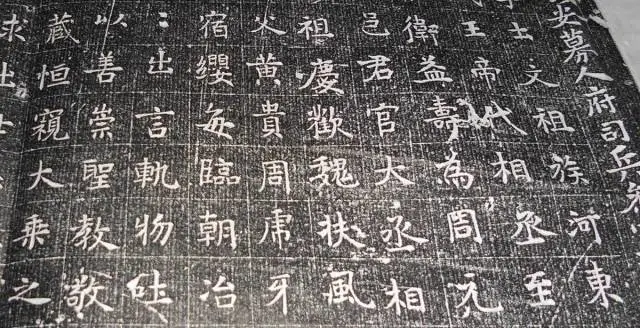 安募人府司兵
士文祖族河東
王帝代相丞至
衛益壽為周元
邑君官大丞相
祖慶歡魏扶風
父黃貴周虎牙
宿纓每臨朝冶
：出言軌物
以善崇聖教敬
藏恒窺大乘之
求出